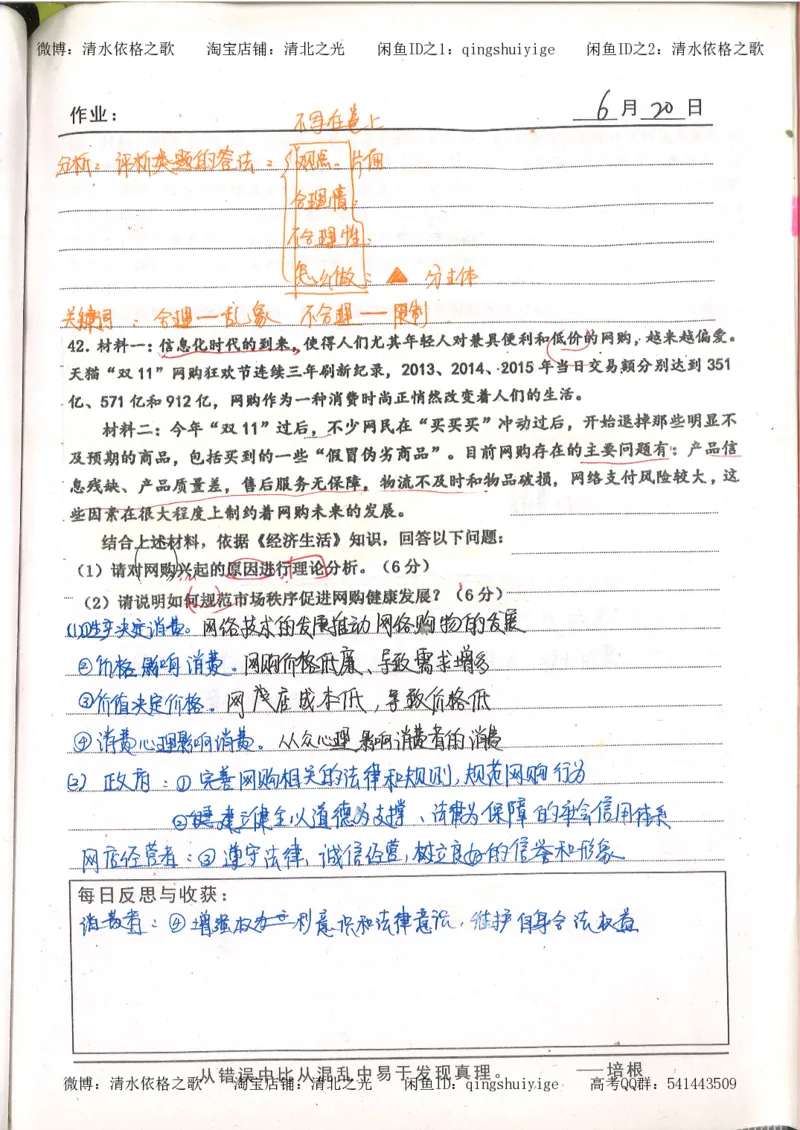 微博：清水依格之歌 淘宝店铺：清北之光 闲鱼ID之1：qingshuiyige 闲鱼ID之2：清水依格之歌
作业： 6月20日
不写在卷上
分析：评析类题的答法：观点。片面
合理情：
不合理性：
怎么做：▲ 分主体
关键词：合理—乱象 不合理—限制
42．材料一：信息化时代的到来，使得人们尤其年轻人对兼具便利和低价的网购，越来越偏爱。
天猫“双11”网购狂欢节连续三年刷新纪录，2013、2014、2015年当日交易额分别达到351
亿、571亿和912亿，网购作为一种消费时尚正悄然改变着人们的生活。
材料二：今年“双11”过后，不少网民在“买买买”冲动过后，开始退掉那些明显不
及预期的商品，包括买到的一些“假冒伪劣商品”。目前网购存在的主要问题有：产品信
息残缺、产品质量差，售后服务无保障，物流不及时和物品破损，网络支付风险较大，这
些因素在很大程度上制约着网购未来的发展。
结合上述材料，依据《经济生活》知识，回答以下问题：
（1）请对网购兴起的原因进行理论分析。（6分）
（2）请说明如何规范市场秩序促进网购健康发展？（6分）
(1)①生产决定消费。网络技术的发展推动网络购物的发展
②价格影响消费。网购价格低廉、导致需求增多
③价值决定价格。网店成本低，导致价格低
④消费心理影响消费。从众心理影响消费者的消费
(2) 政府：①完善网购相关的法律和规则，规范网购行为
②建立健全以道德为支撑、法律为保障的社会信用体系
网店经营者：③遵守法律，诚信经营，树立良好的信誉和形象
每日反思与收获：
消费者：④增强权利意识和法律意识，维护自身合法权益
从错误中比从混乱中易于发现真理。 ——培根
微博：清水依格之歌 淘宝店铺：清北之光 闲鱼ID：qingshuiyige 高考QQ群：541443509